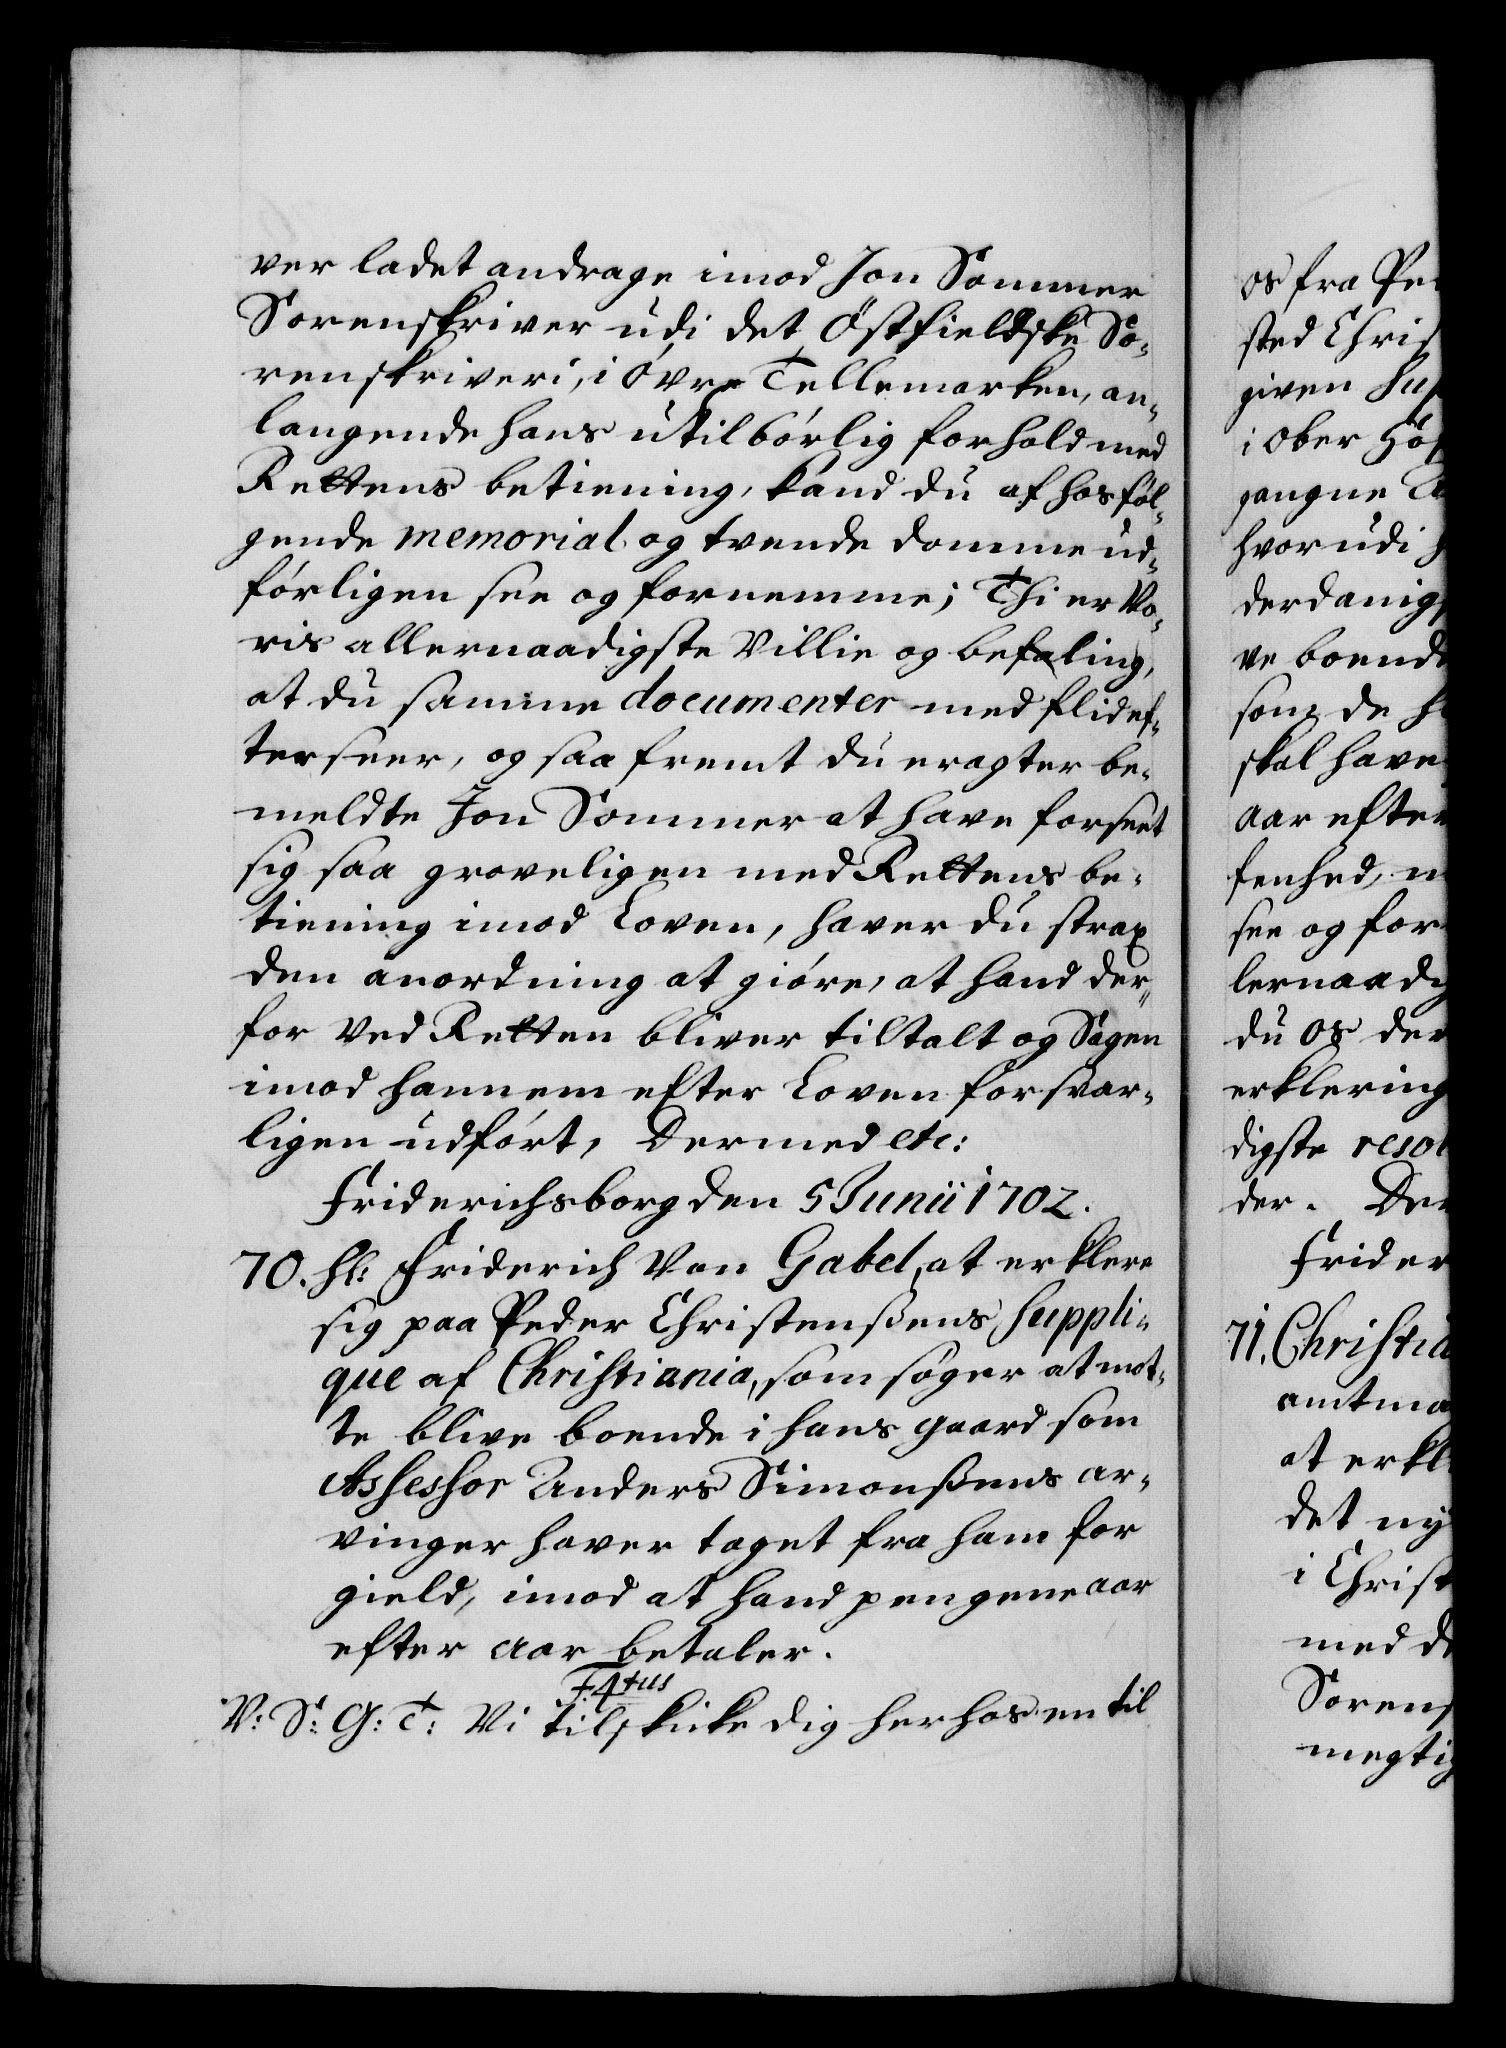 ver ladet andrage imod Jon Sommer
Sorenskriver udi det Østfieldske So-
renskriveri, i Øvre Tellemarken, an-
langende hans utilbørlig forhold med
Rettens betiening, kand du af hosføl-
gende memorial og tvende domme ud-
førligen see og fornemme; Thi er Vo-
ris allernaadigste Villie og befaling,
at du samme documenter med flid ef-
terseer, og saa fremt du eragter be-
meldte Jon Sommer at have forseet
sig saa groveligen med Rettens be-
tiening imod Loven, haver du strax
den anordning at giøre, at hand der-
for ved Retten bliver tiltalt og Sagen
imod hannem efter Loven forsvar-
ligen udført, Dermed etc:
Friderichsborg den 5 Junii 1702.
70. Hr: Friderich Von Gabel, at erklere
sig paa Peder Christenßens Suppli-
que af Christiania, som søger at mot-
te blive boende i hans gaard som
Assessor Anders Simonßens ar-
vinger haver taget fra ham for
gield, imod at hand pengene aar
efter aar betaler.
F: 4tus
V: S: G: T: Vi tilskicke dig herhos en til
os fra Pe
sted Chris
given Sup
i Ober Høf
gangne
hvorudi
derdanigs
ve boende
som de
skal have
aar efter
fenhed,
see og for
lernaadig
du os der
erklering
digste resol
der. Der
Frider
71. Christia
amtma
at erkl
det ny
i Christ
med d
Sorens
megtig